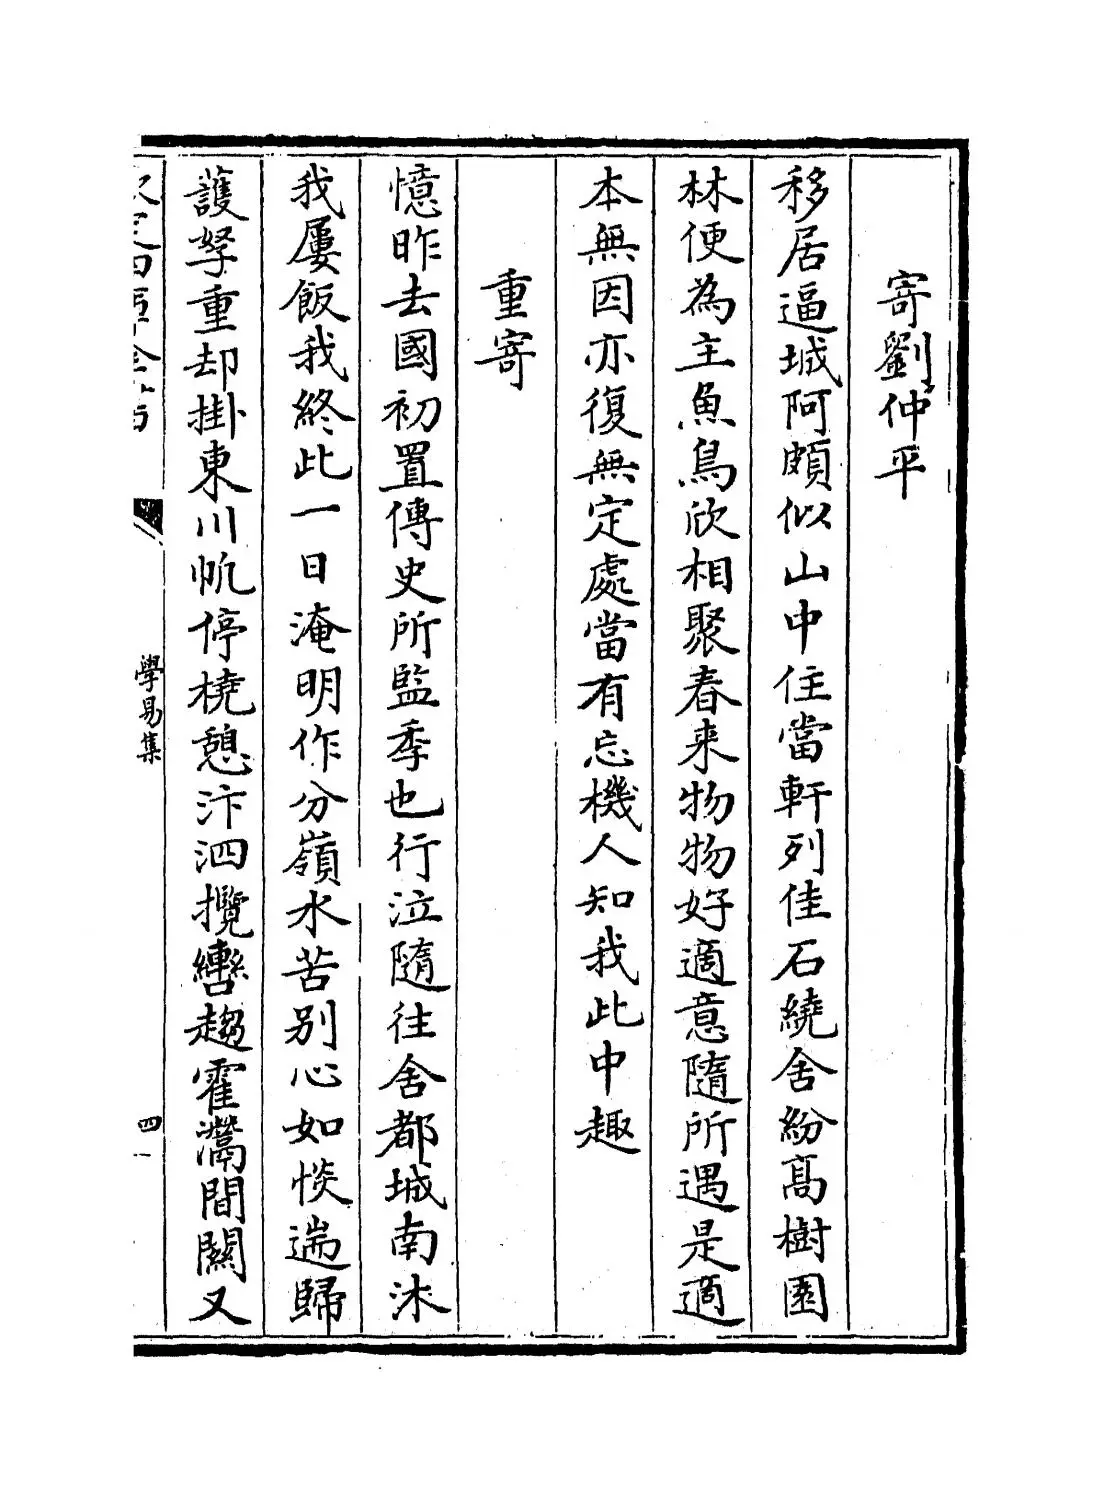 寄劉仲平
移居逼城阿頗似山中住當軒列佳石繞舍紛髙樹園
林便為主魚鳥欣相聚春来物物好適意隨所遇是適
本無因亦復無定處當有忘機人知我此中趣
重寄
憶昨去國初置傳史所監季也行泣隨往舍都城南沐
我屢飯我終此一日淹明作分嶺水苦别心如惔遄歸
護孥重却掛東川帆停橈憩汴泗攬轡趨霍灊間關又
欽定四庫全書
學易集
四